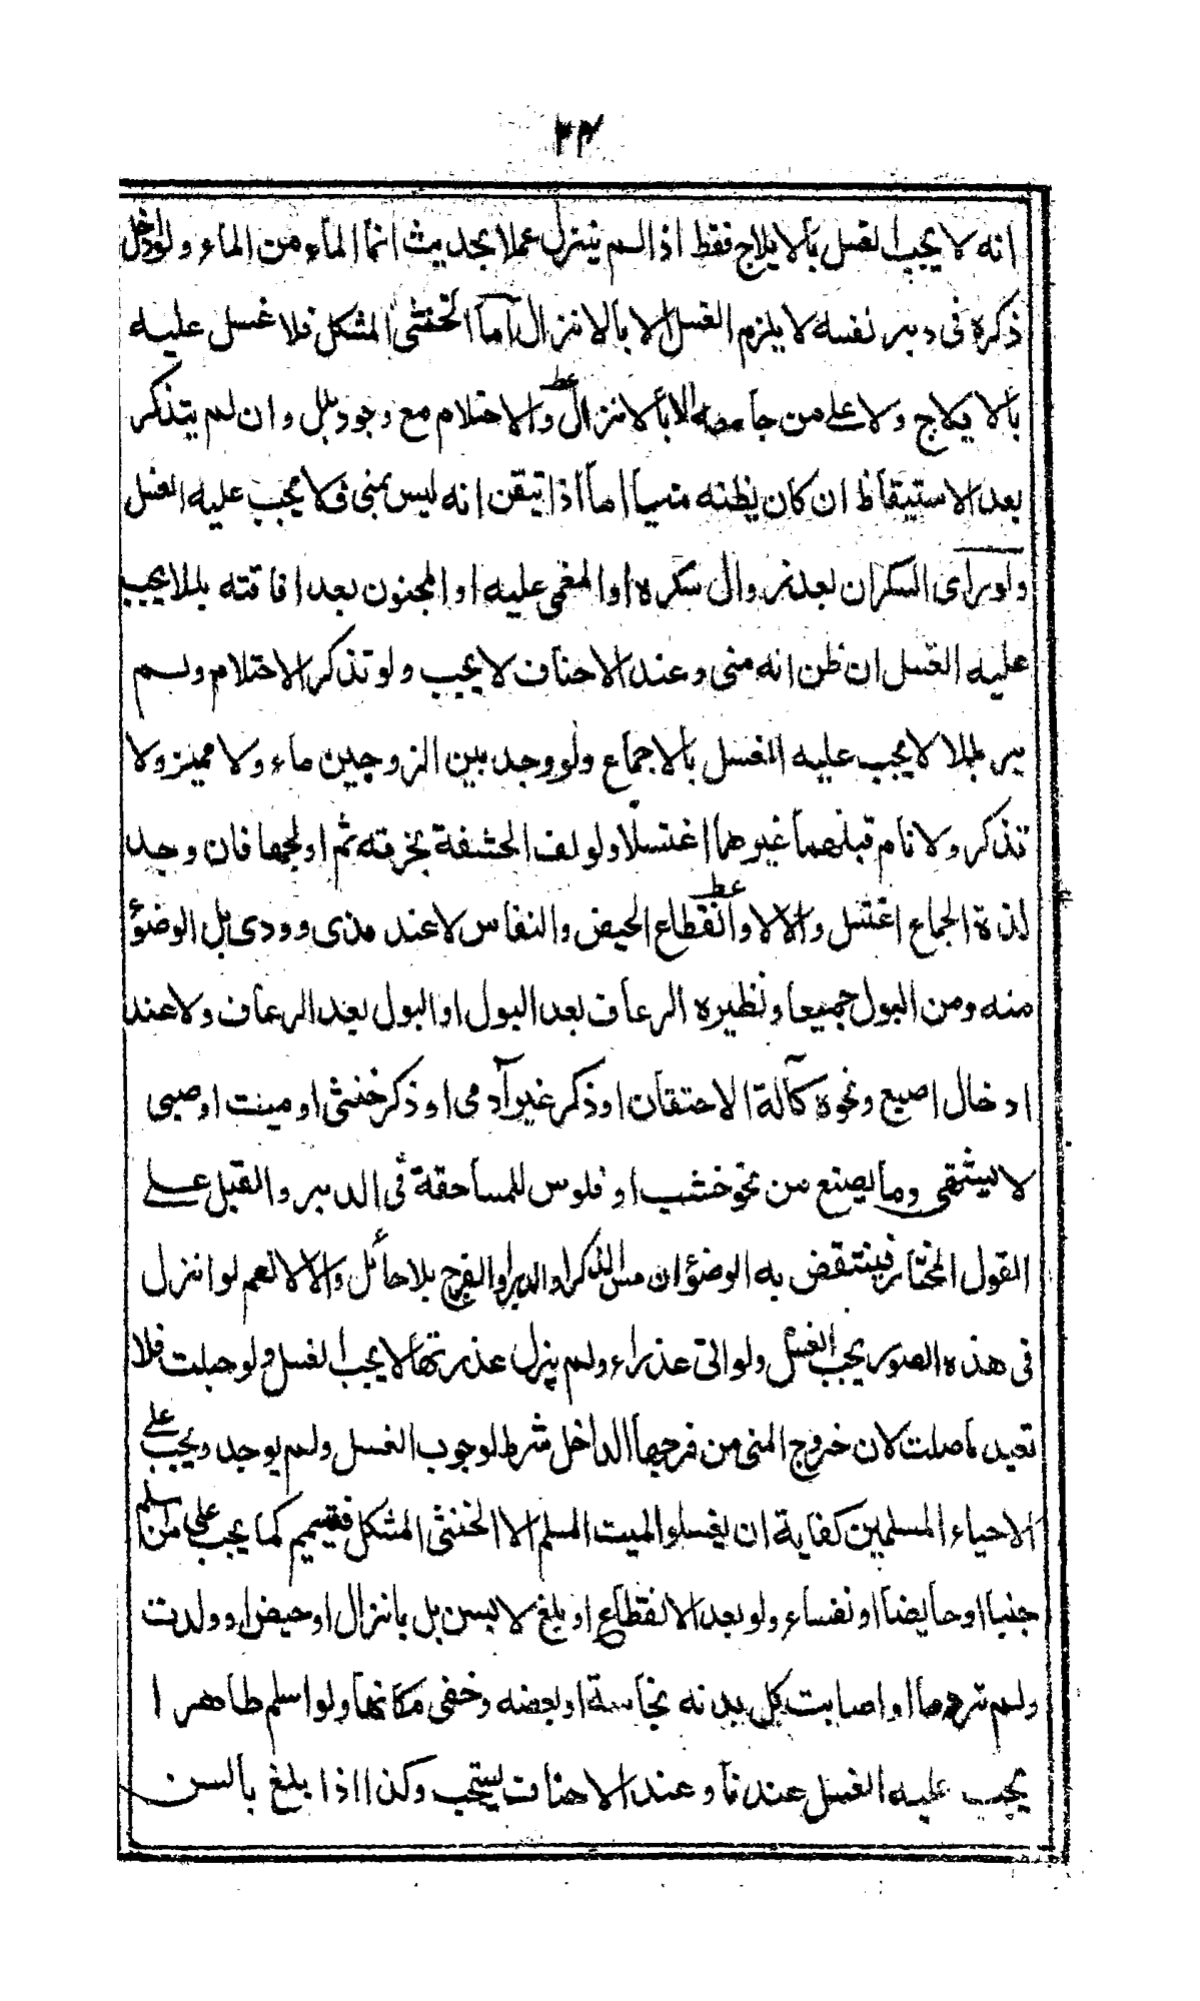 ٢٣
انه لا يجب الغسل بالايلاج فقط اذا لم ينزل عملا بحديث انما الماء من الماء ولو ادخل
ذكره فى دبر نفسه لا يلزم الغسل الا بالانزال اما الخنثى المشكل فلا غسل عليه
بالايلاج ولا على من جامعه الا بالانزال والاحتلام مع وجود بلل وان لم يتذكر
بعد الاستيقاظ ان كان يظنه منيا اما اذا تيقن انه ليس بمنى فلا يجب عليه الغسل
ولو راى السكران بعد زوال سكره او المغمى عليه او المجنون بعد افاقته بللا يجب
عليه الغسل ان ظن انه منى وعند الاحناف لا يجب ولو تذكر الاحتلام ولم
ير بللا لا يجب عليه الغسل بالاجماع ولو وجد بين الزوجين ماء ولا مميز ولا
تذكر ولا نام قبلهما غيرهما اغتسلا ولو لف الحشفة بخرقته ثم اولجها فان وجد
لذة الجماع اغتسل والا لا وانقطاع الحيض والنفاس لا عند مذى وودى بل الوضؤ
منه ومن البول جميعا ونظيره الرعاف بعد البول او البول بعد الرعاف ولا عند
ادخال اصبع ونحوه كآلة الاحتقان او ذكر غير آدمى او ذكر خنثى او ميت او صبى
لا يشتهى وما يصنع من نحو خشب او فلوس للمساحقة فى الدبر والقبل على
القول المختار فينتقض به الوضؤ ان مس الذكر او الدبر او الفرج بلا حائل والا لا نعم لو انزل
فى هذه الصور يجب الغسل ولو اتى عذراء ولم يزل عذرتها لا يجب الغسل ولو حبلت فلا
تعيد ما صلت لان خروج المنى من فرجها الداخل شرط لوجوب الغسل ولم يوجد ويجب على
الاحياء المسلمين كفاية ان يغسلوا الميت المسلم الا الخنثى المشكل فييمم كما يجب على من اسلم
جنبا او حايضا او نفساء ولو بعد الانقطاع او بلغ لا بسن بل بانزال او حيض او ولدت
ولم تر دما او اصابت كل بدنه نجاسة او بعضه وخفى مكانها ولو اسلم طاهرا
يجب عليه الغسل عندنا وعند الاحناف يستحب وكذا اذا بلغ بالسن